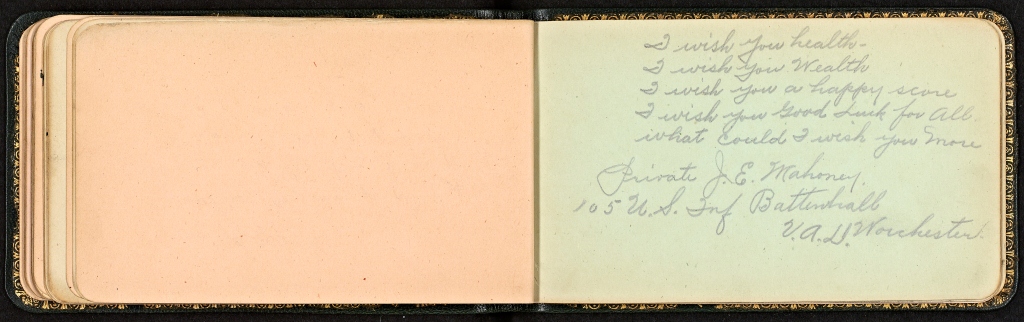 I wish you health-
I wish you Wealth
I wish you a happy score
I wish you Good Luck for All
what could I wish you more
Private J. E. Mahoney.
105 U. S. Inf Battenhall
V.A.D. Worchester.